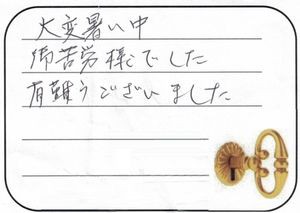 大変暑い中
御苦労様でした
有難うございました